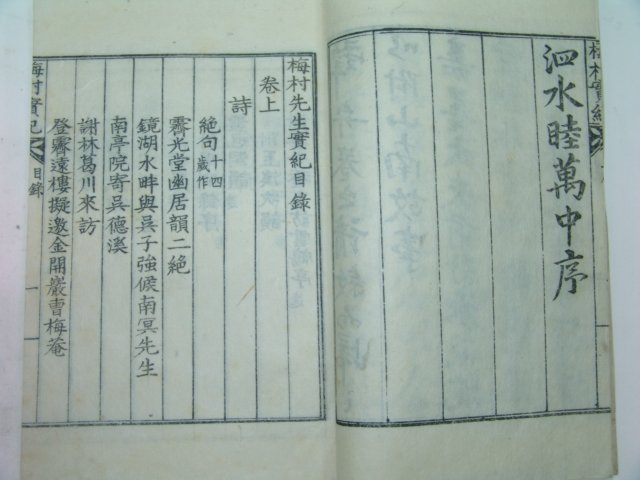 梅村實紀
泗水睦萬中序
梅村先生實紀目錄
卷上
詩
絶句十四歲作
霽光堂幽居韻二絶
鏡湖水畔與吳子強候南冥先生
南亭院寄吳德溪
謝林葛川來訪
登霽遠樓擬邀金開巖曺梅菴
梅村實紀
目錄
一